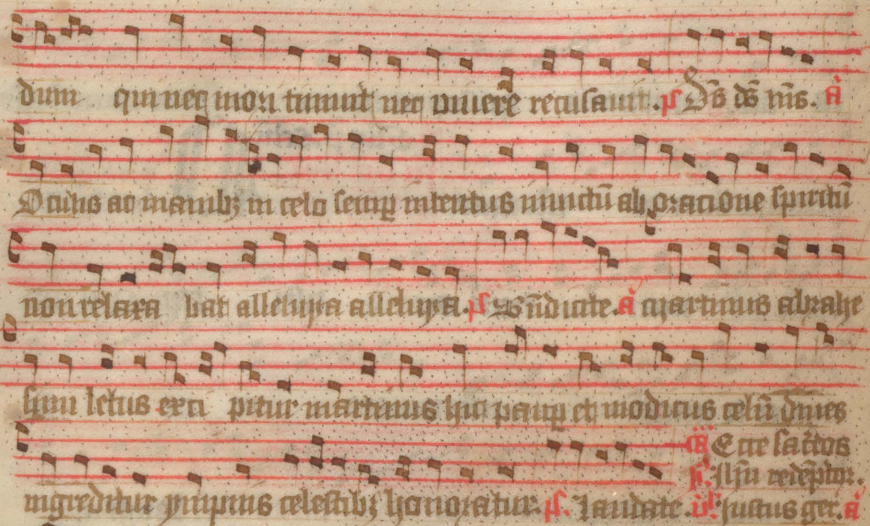 dum qui neq mori timuit nec viuere recusauit. ps Ds ds ms. A
Oculis ac manibz in celo semp intentus inuictū ab oracione spiritū
non relaxa bat alleluya alleluya. ps Bndicite. A Martinus abrahe
sinu letus exci pitur martinus hic paup et modicus celū diues
ingreditur ympnis celestibz honoratur. ps. laudate.
Ecce sac̄dos
filsu redēptor.
Justus ger. a